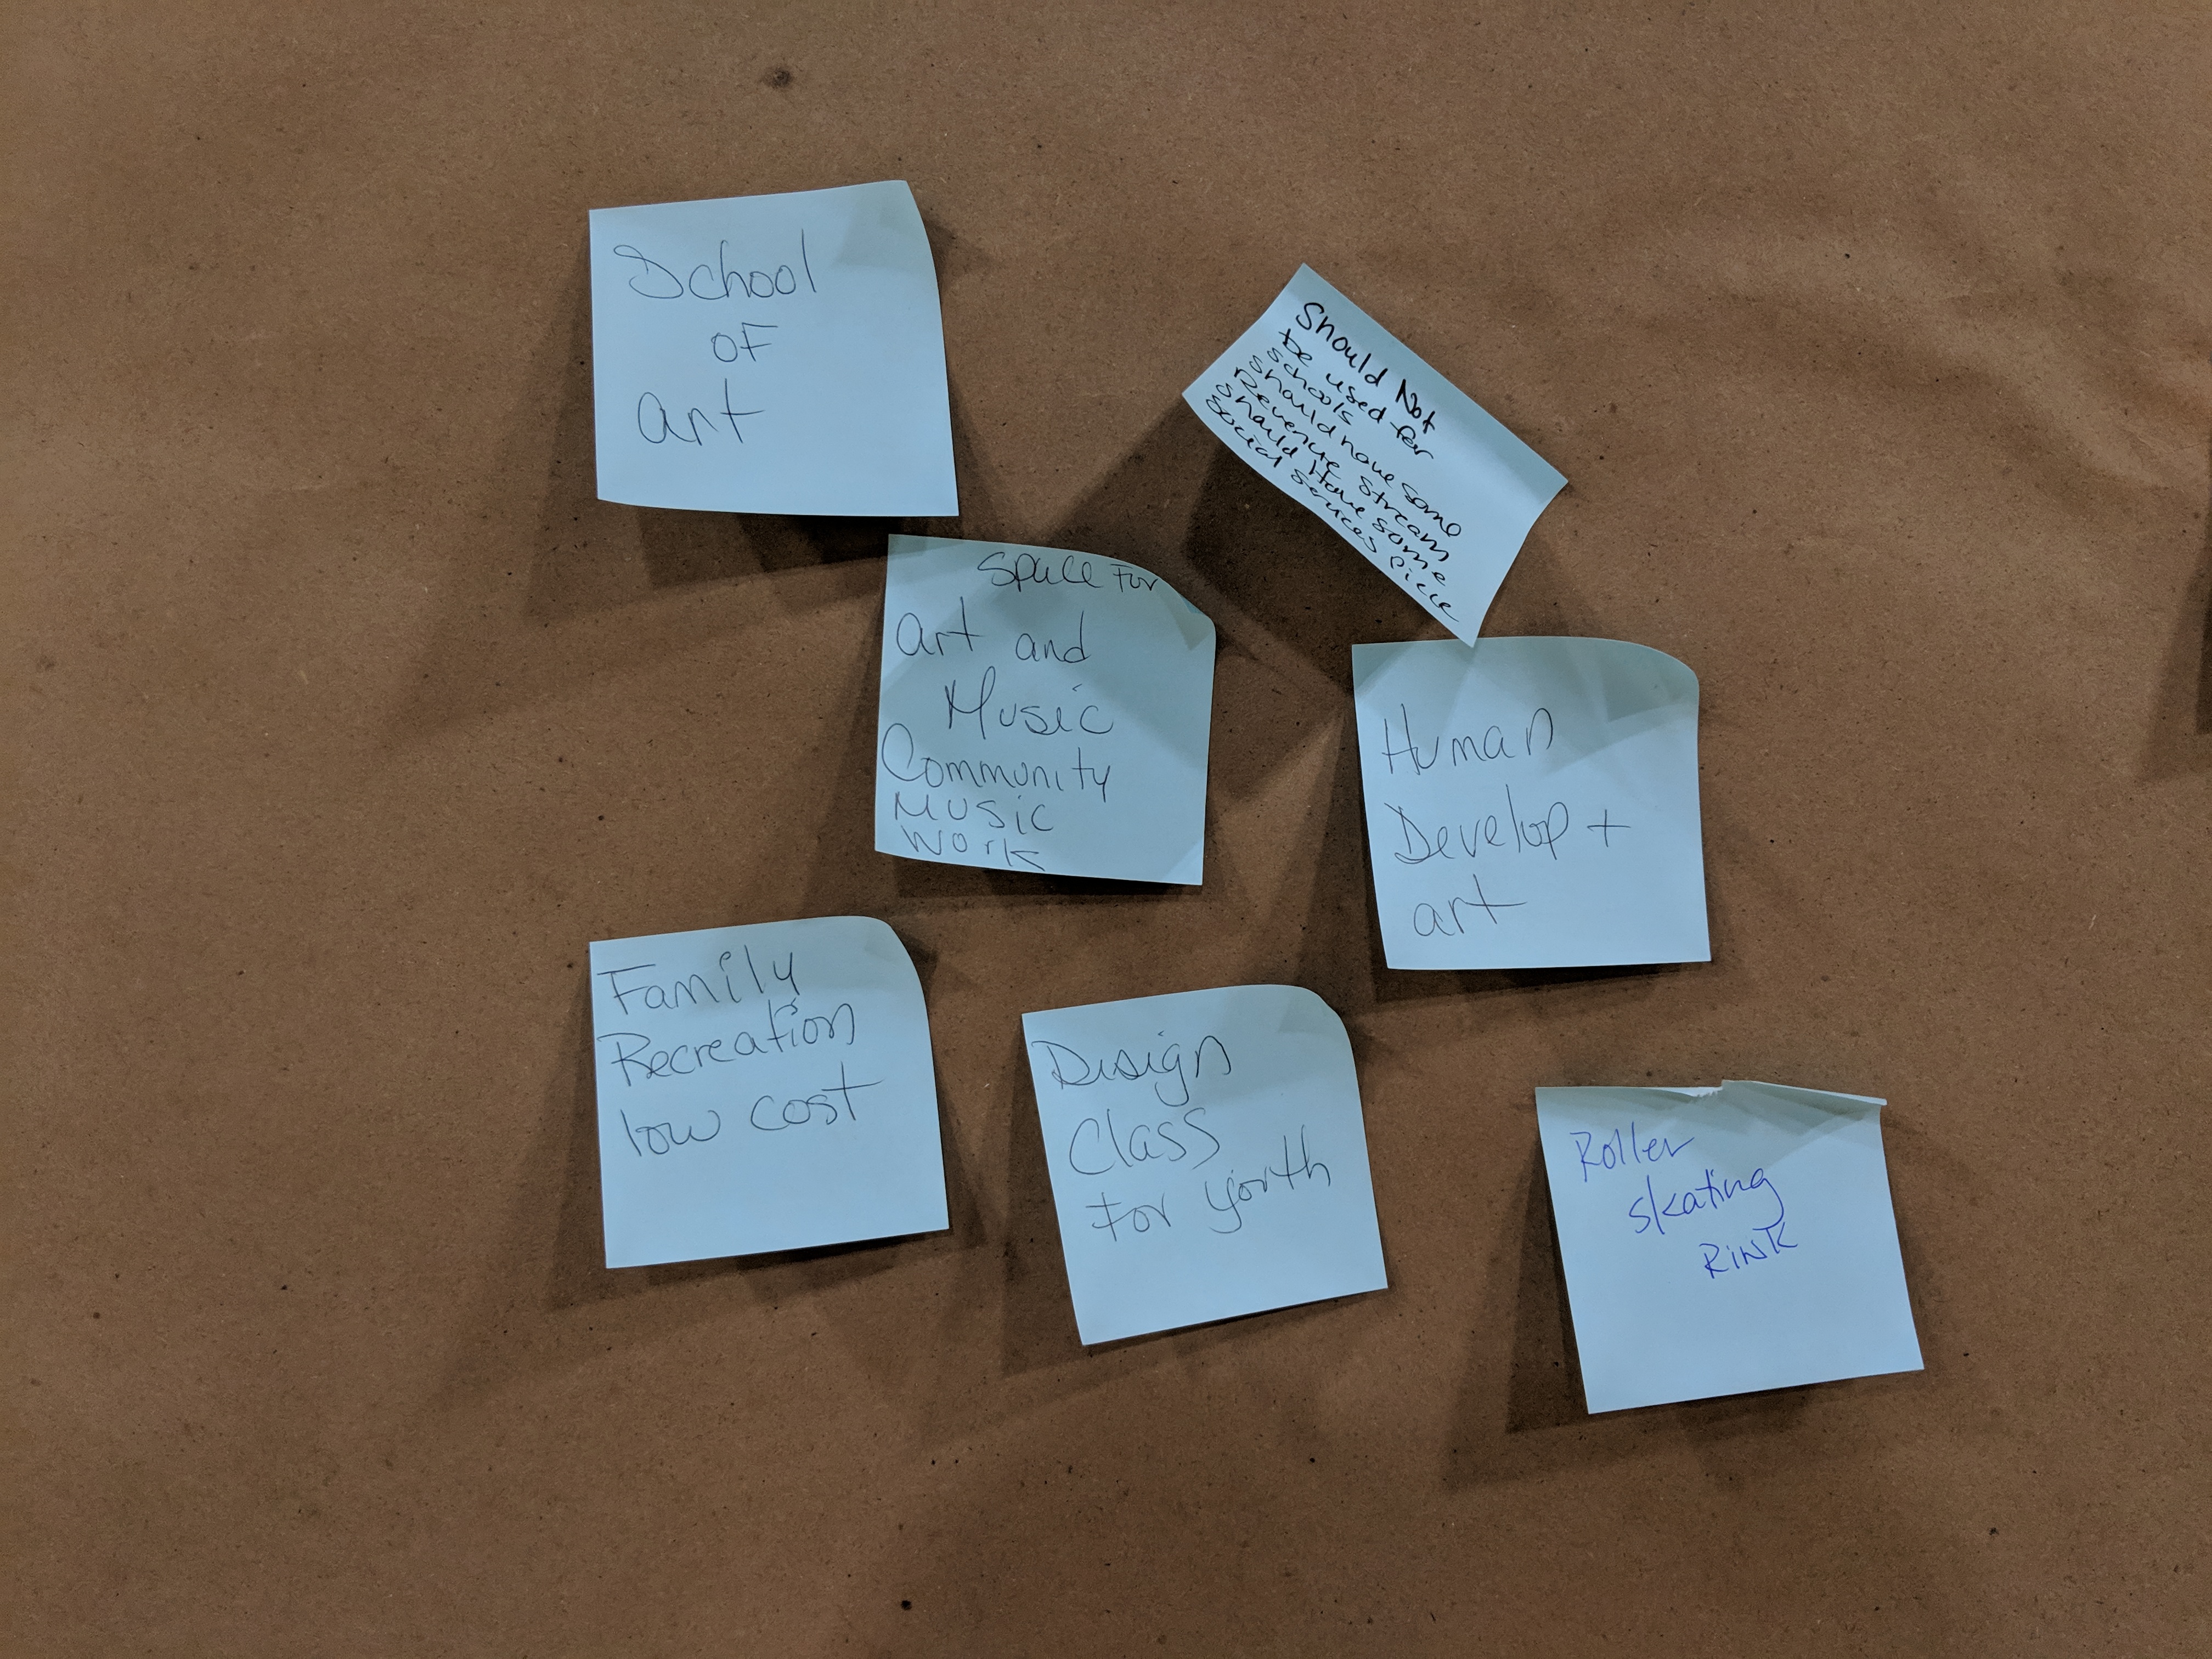 School
OF
art
Should Not
be used for
schools
should have some
Revenue stream
should Have some
social services piece
Space For
art and
Music
Community
Music
Work
Human
Develop +
art
Family
Recreation
low cost
Design
Class
For youth
Roller
skating
Rink